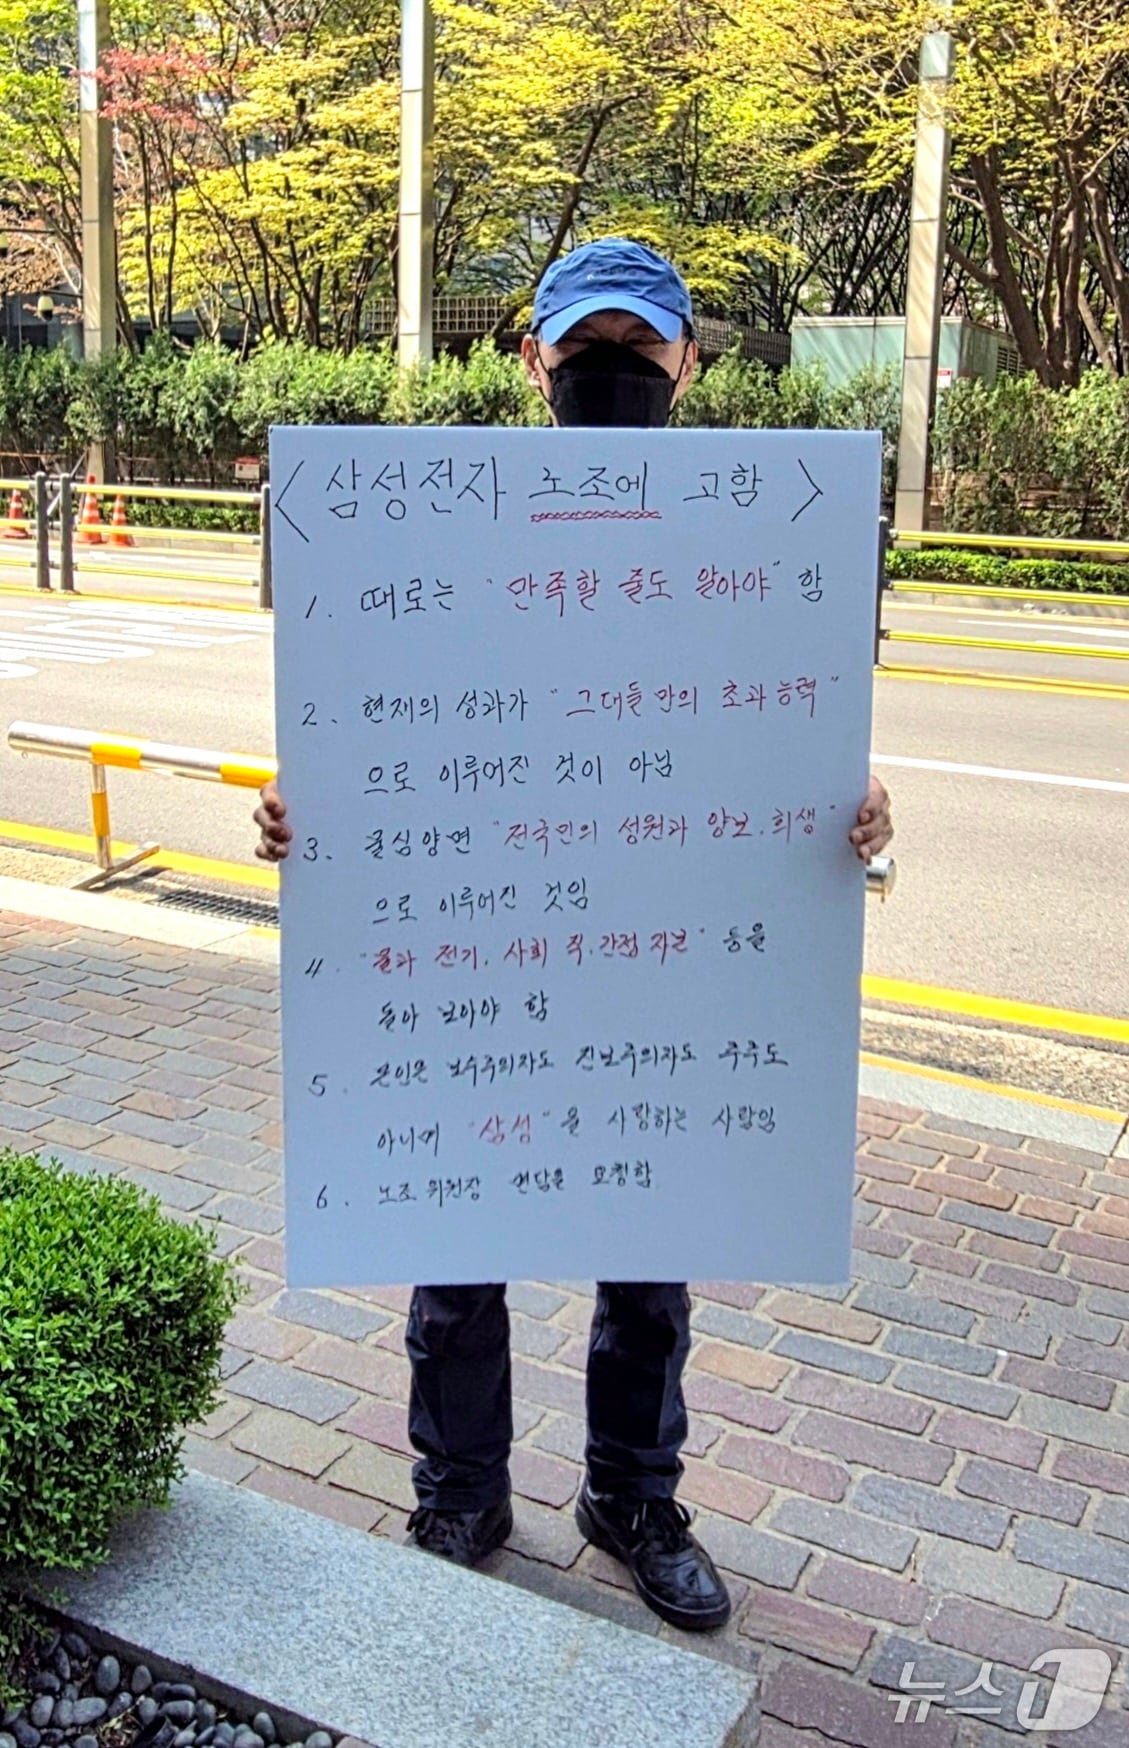 < 삼성전자 노조에 고함 >
1. 때로는 "만족할 줄도 알아야" 함
2. 현재의 성과가 "그대들만의 초과능력"
으로 이루어진 것이 아님
3. 물심양면 "전국민의 성원과 양보.희생"
으로 이루어진 것임
4. "물과 전기. 사회 직.간접 자본" 등을
돌아 보아야 함
5. 본인은 보수주의자도 진보주의자도 주주도
아니며 "삼성"을 사랑하는 사람임
6. 노조 위원장 면담을 요청함
뉴스1